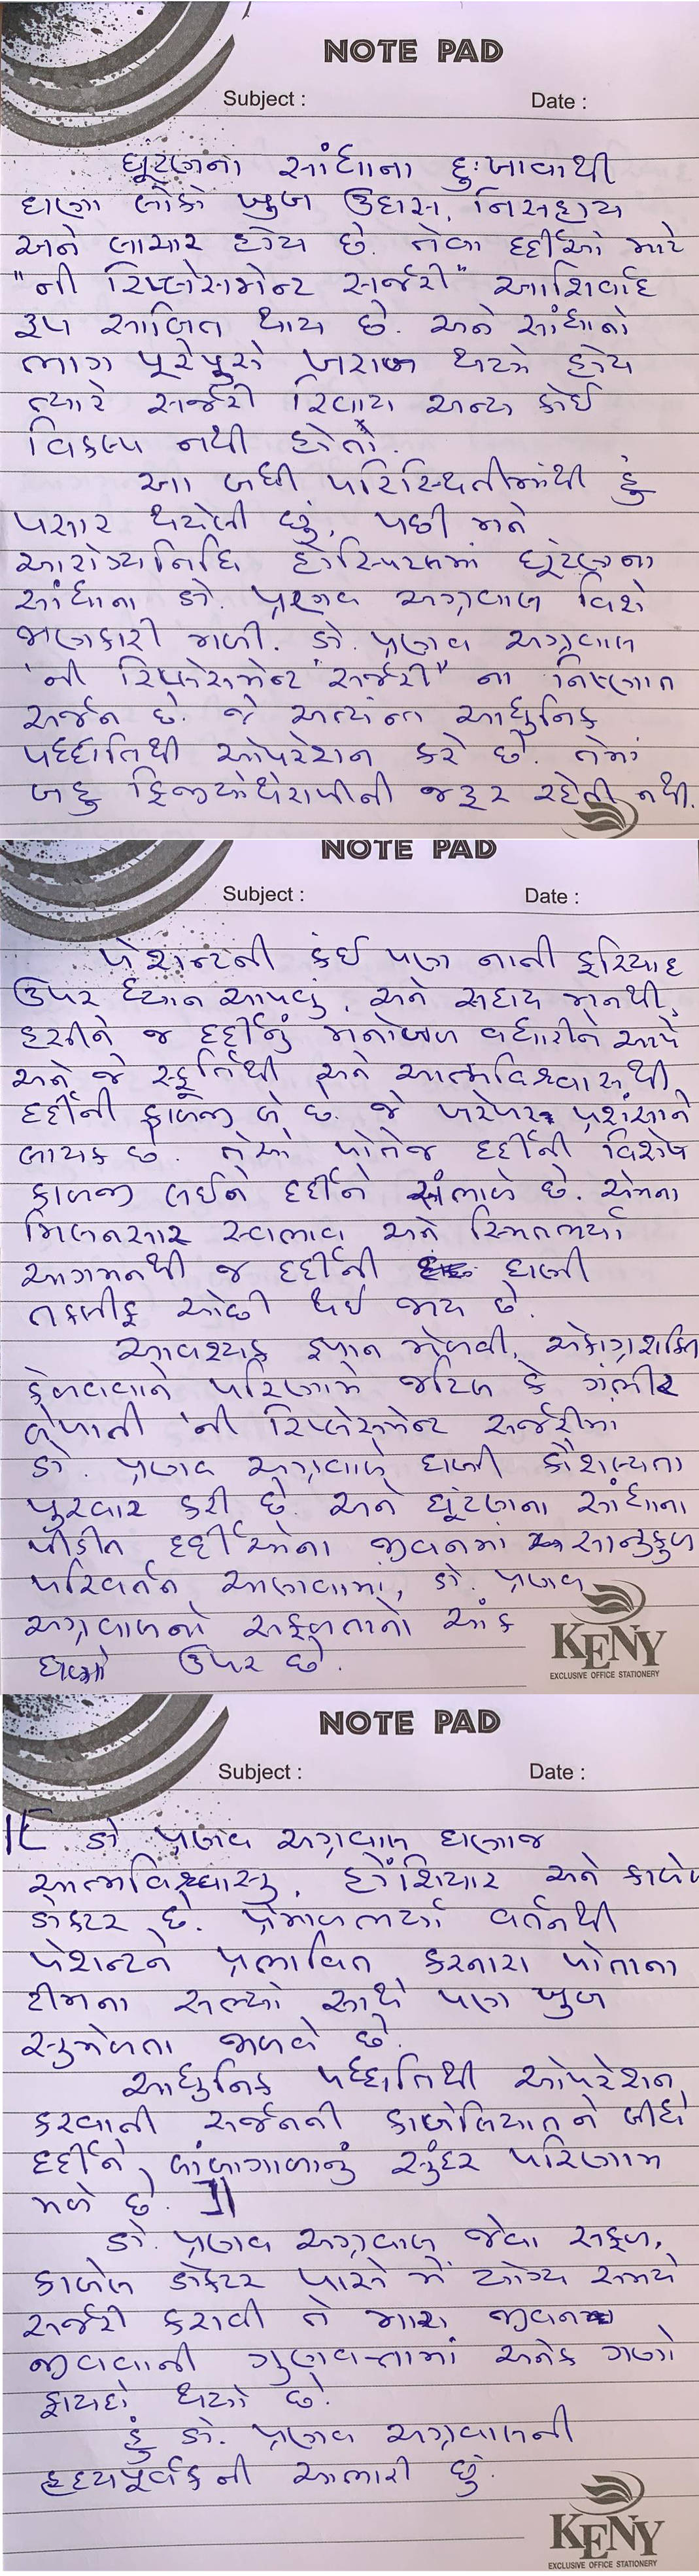 NOTE PAD
Subject : Date :
ઘૂંટણના સાંધાના દુ:ખાવાથી
ઘણા લોકો ખુબ ઉદાસ, નિસહાય
અને લાચાર હોય છે. તેવા દર્દીઓ માટે
"ની રિપ્લેસમેન્ટ સર્જરી" આશિર્વાદ
રૂપ સાબિત થાય છે. અને સાંધાનો
ભાગ પૂરેપુરો ખરાબ થયો હોય
ત્યારે સર્જરી સિવાય અન્ય કોઈ
વિકલ્પ નથી હોતો.
આ બધી પરિસ્થિતીમાંથી હું
પસાર થયેલી છું, પછી મને
આરોગ્યનિધિ હોસ્પિટલમાં ઘૂંટણના
સાંધાના ડો. પ્રણવ અગ્રવાલ વિશે
જાણકારી મળી. ડો. પ્રણવ અગ્રવાલ
'ની રિપ્લેસમેન્ટ "સર્જરી" ના નિષ્ણાત
સર્જન છે. જે અત્યંત આધુનિક
પધ્ધતિથી ઓપરેશન કરે છે. તેમાં
બહુ ફિજીયોથેરાપીની જરૂર રહેતી નથી.
NOTE PAD
Subject : Date :
પેશન્ટની કંઈ પણ નાની ફરિયાદ
ઉપર ધ્યાન આપવું, અને સહાય મનથી,
હસીને જ દર્દીનું મનોબળ વધારીને આપે
અને જે સ્ફૂર્તિથી અને આત્મવિશ્વાસથી
દર્દીની કાળજી લે છે. જે ખરેખર પ્રશંસાને
લાયક છે. તેઓ પોતેજ દર્દીની વિશેષ
કાળજી લઈને દર્દીને સંભાળે છે. એમના
મિલનસાર સ્વભાવ અને સ્મિતભર્યા
આગમનથી જ દર્દીની ઘણી
તકલીફ ઓછી થઈ જાય છે.
આવશ્યક જ્ઞાન મેળવી, એકાગ્રશક્તિ
કેળવવાને પરિણામે જટિલ કે ગંભીર
લેખાતી 'ની રિપ્લેસમેન્ટ સર્જરીમાં
ડો. પ્રણવ અગ્રવાલે ઘણી કૌશલ્યતા
પુરવાર કરી છે. અને ઘૂંટણના સાંધાના
પીડીત દર્દીઓના જીવનમાં સાનુકુળ
પરિવર્તન આણવામાં, ડો. પ્રણવ
અગ્રવાલનો સફળતાનો આંક
ઘણો ઉપર છે.
KENY
EXCLUSIVE OFFICE STATIONERY
NOTE PAD
Subject : Date :
ડો પ્રણવ અગ્રવાલ ઘણાજ
આત્મવિશ્વાસુ, હોંશિયાર અને કાબેલ
ડોક્ટર છે. પ્રેમાળભર્યા વર્તનથી
પેશન્ટને પ્રભાવિત કરનારા પોતાના
ટીમના સભ્યો સાથે પણ ખુબ
સુમેળતા જાળવે છે.
આધુનિક પધ્ધતિથી ઓપરેશન
કરવાની સર્જનની કાબેલિયાતને લીધે
દર્દીને લાંબાગાળાનું સુંદર પરિણામ
મળે છે.
ડો. પ્રણવ અગ્રવાલ જેવા સફળ,
કાબેલ ડોક્ટર પાસે મેં યોગ્ય સમયે
સર્જરી કરાવી તે મારા જીવન
જીવવાની ગુણવત્તામાં અનેક ગણો
ફાયદો થયો છે.
હું ડો. પ્રણવ અગ્રવાલની
હૃદયપૂર્વકની આભારી છું.
KENY
EXCLUSIVE OFFICE STATIONERY